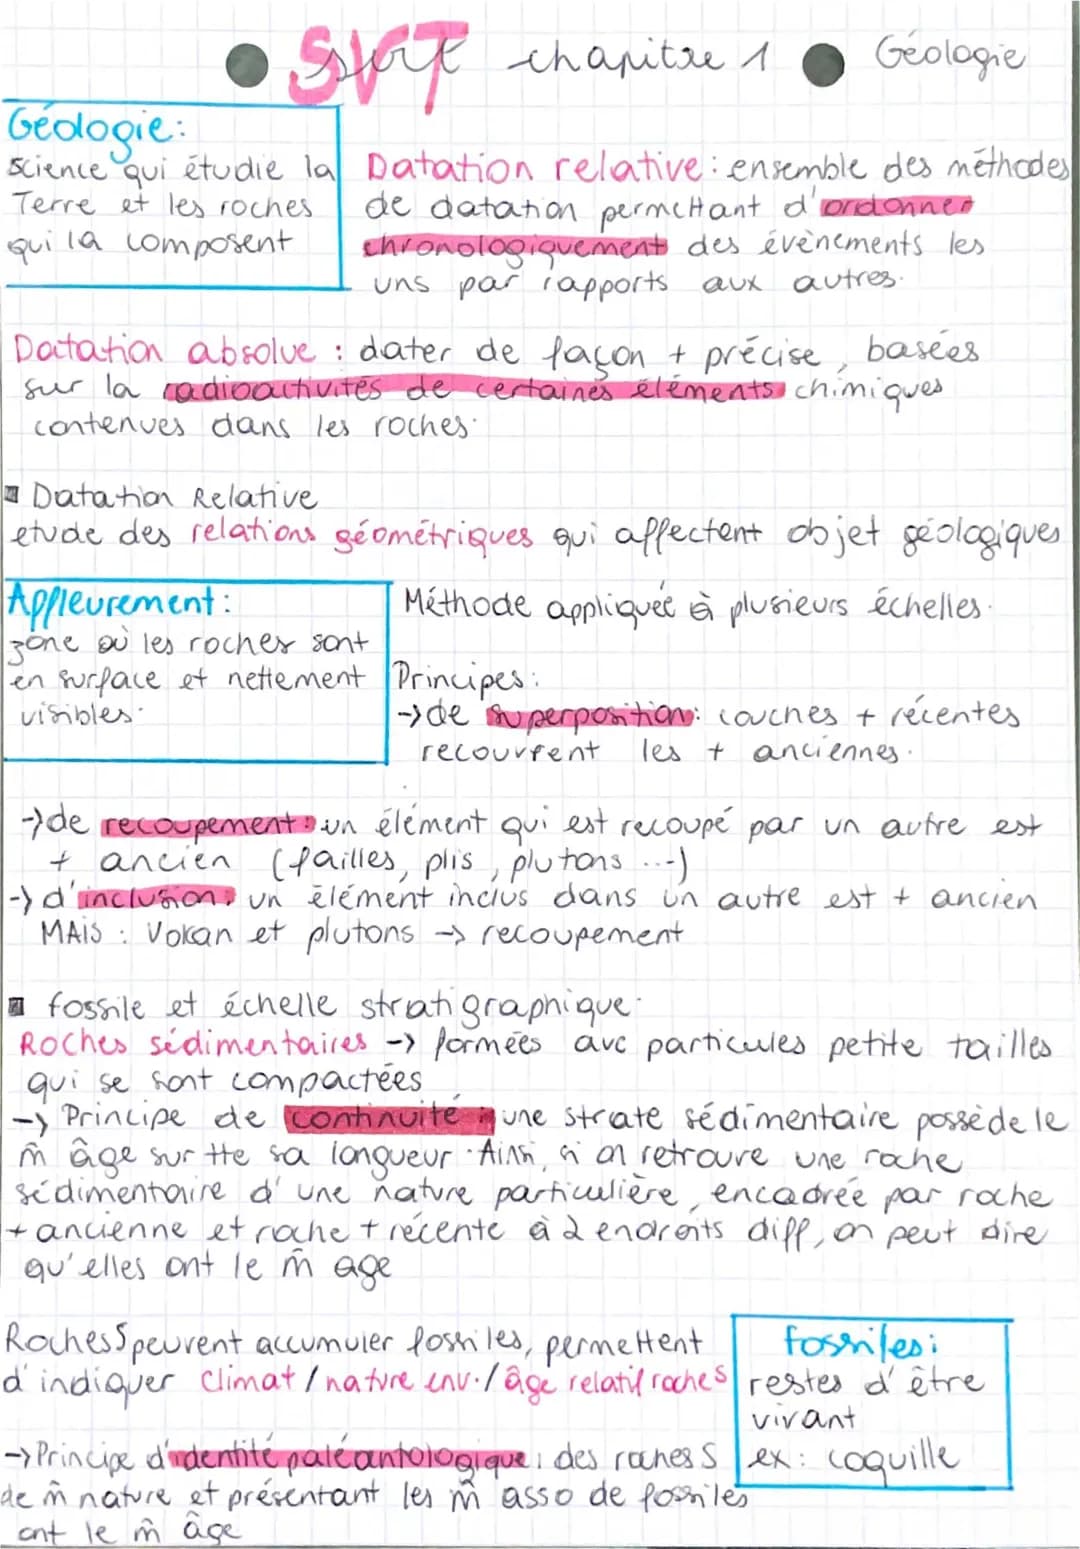 SVT chapitre 1 Géologie
Géologie:
science qui étudie la
Terre et les roches
qui la composent
Datation relative : ensemble des méthodes
de datation permettant d'ordonner
chronologiquement des évènements les
uns par rapports aux autres.
Datation absolue : dater de façon + précise, basées
sur la radioactivités de certaines éléments chimiques
contenues dans les roches.
Datation Relative
etude des relations géométriques qui affectent objet géologiques
Affleurement :
zone où les roches sont
en surface et nettement
visibles.
Méthode appliquée à plusieurs échelles.
Principes :
-> de superposition : couches + récentes
recouvrent les + anciennes.
-> de recoupement : un élément qui est recoupé par un autre est
+ ancien (failles, plis, plutons ...)
-> d'inclusion : un élément inclus dans un autre est + ancien
MAIS : Volcan et plutons -> recoupement
fossile et échelle stratigraphique.
Roches sédimentaires -> formées avc particules petite tailles
qui se sont compactées
-> Principe de continuité : une strate sédimentaire possède le
m̂ âge sur tte sa longueur. Ainsi, si on retrouve une roche
sédimentaire d'une nature particulière, encadrée par roche
+ ancienne et roche + récente à 2 endroits diff, on peut dire
qu'elles ont le m̂ age
Roches S peuvent accumuler fossiles, permettent
d'indiquer climat / nature env. / âge relatif roches
fossiles :
restes d'être
vivant
ex : coquille
-> Principe d'identité paléantologique : des roches S
de m̂ nature et présentant les m̂ asso de fossiles
ont le m̂ âge